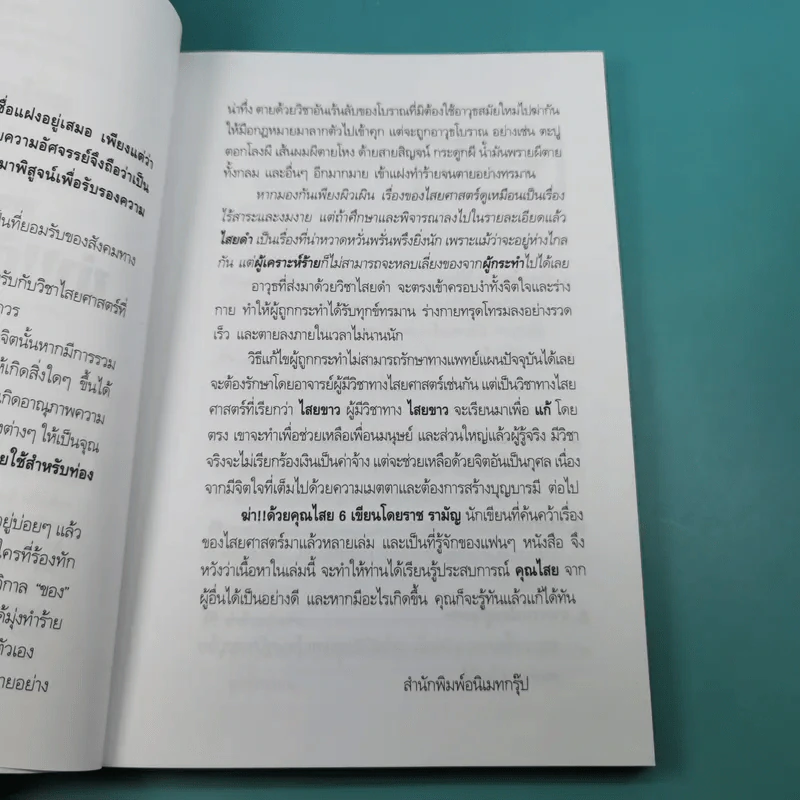 ชื่อแฝงอยู่เสมอ เพียงแต่ว่า
ความอัศจรรย์จึงถือว่าเป็น
มาพิสูจน์เพื่อรับรองความ
เป็นที่ยอมรับของสังคมทาง
รับกับวิชาไสยศาสตร์ที่
าวร
จิตนั้นหากมีการรวม
ให้เกิดสิ่งใดๆ ขึ้นได้
เกิดอาณุภาพความ
งต่างๆ ให้เป็นจุณ
ยใช้สำหรับท่อง
อยู่บ่อยๆ แล้ว
ใครที่ร้องทัก
กาล "ของ"
ด้มุ่งทำร้าย
ตัวเอง
ายอย่าง
น่าทึ่ง ตายด้วยวิชาอันเร้นลับของโบราณที่มิต้องใช้อาวุธสมัยใหม่ไปฆ่ากัน
ให้มือกฎหมายมาลากตัวไปเข้าคุก แต่จะถูกอาวุธโบราณ อย่างเช่น ตะปู
ตอกโลงผี เส้นผมผีตายโหง ด้ายสายสิญจน์ กระดูกผี น้ำมันพรายผีตาย
ทั้งกลม และอื่นๆ อีกมากมาย เข้าแฝงทำร้ายจนตายอย่างทรมาน
หากมองกันเพียงผิวเผิน เรื่องของไสยศาสตร์ดูเหมือนเป็นเรื่อง
ไร้สาระและงมงาย แต่ถ้าศึกษาและพิจารณาลงไปในรายละเอียดแล้ว
ไสยดำ เป็นเรื่องที่น่าหวาดหวั่นพรั่นพรึงยิ่งนัก เพราะแม้ว่าจะอยู่ห่างไกล
กัน แต่ผู้เคราะห์ร้ายก็ไม่สามารถจะหลบเลี่ยงของจากผู้กระทำไปได้เลย
อาวุธที่ส่งมาด้วยวิชาไสยดำ จะตรงเข้าครอบงำทั้งจิตใจและร่าง
กาย ทำให้ผู้ถูกกระทำได้รับทุกข์ทรมาน ร่างกายทรุดโทรมลงอย่างรวด
เร็ว และตายลงภายในเวลาไม่นานนัก
วิธีแก้ไขผู้ถูกกระทำไม่สามารถรักษาทางแพทย์แผนปัจจุบันได้เลย
จะต้องรักษาโดยอาจารย์ผู้มีวิชาทางไสยศาสตร์เช่นกัน แต่เป็นวิชาทางไสย
ศาสตร์ที่เรียกว่า ไสยขาว ผู้มีวิชาทาง ไสยขาว จะเรียนมาเพื่อ แก้ โดย
ตรง เขาจะทำเพื่อช่วยเหลือเพื่อนมนุษย์ และส่วนใหญ่แล้วผู้รู้จริง มีวิชา
จริงจะไม่เรียกร้องเงินเป็นค่าจ้าง แต่จะช่วยเหลือด้วยจิตอันเป็นกุศล เนื่อง
จากมีจิตใจที่เต็มไปด้วยความเมตตาและต้องการสร้างบุญบารมี ต่อไป
ฆ่า!!ด้วยคุณไสย 6 เขียนโดยราช รามัญ นักเขียนที่ค้นคว้าเรื่อง
ของไสยศาสตร์มาแล้วหลายเล่ม และเป็นที่รู้จักของแฟนๆ หนังสือ จึง
หวังว่าเนื้อหาในเล่มนี้ จะทำให้ท่านได้เรียนรู้ประสบการณ์ คุณไสย จาก
ผู้อื่นได้เป็นอย่างดี และหากมีอะไรเกิดขึ้น คุณก็จะรู้ทันแล้วแก้ได้ทัน
สำนักพิมพ์อนิเมทกรุ๊ป